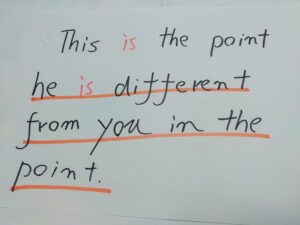 This is the point
he is different
from you in the
point.